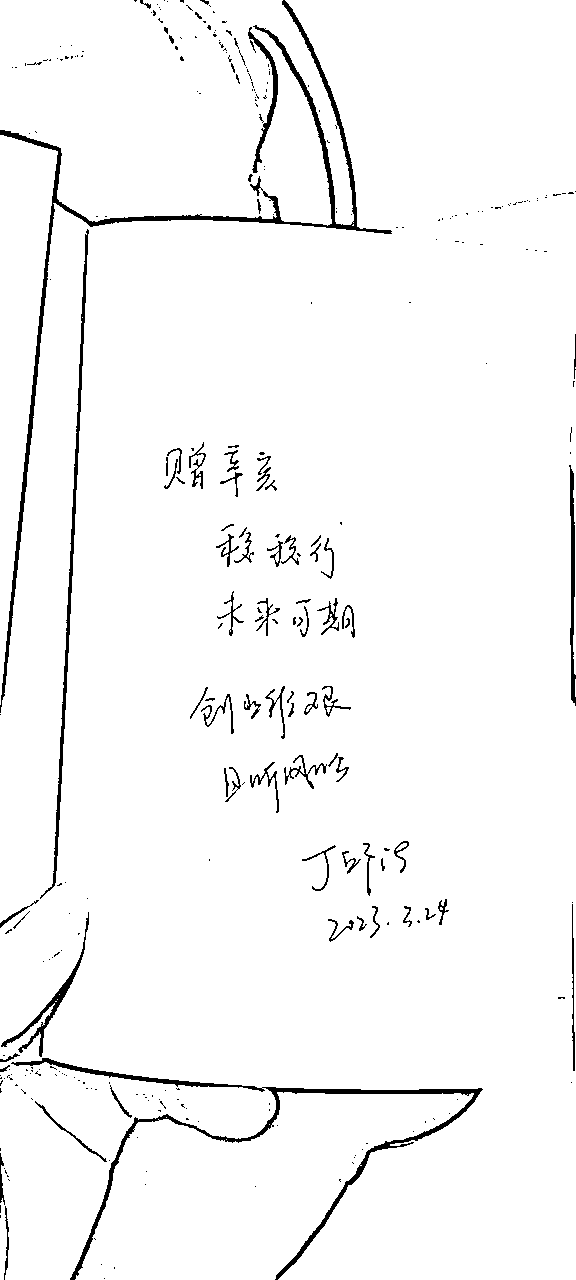 赠辛亥
稳稳行
未来可期
创业维艰
且听风吟
丁
2023.3.24